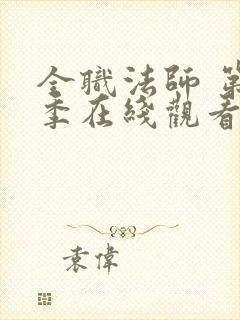 全職法師 第
季在綫觀看
袁偉